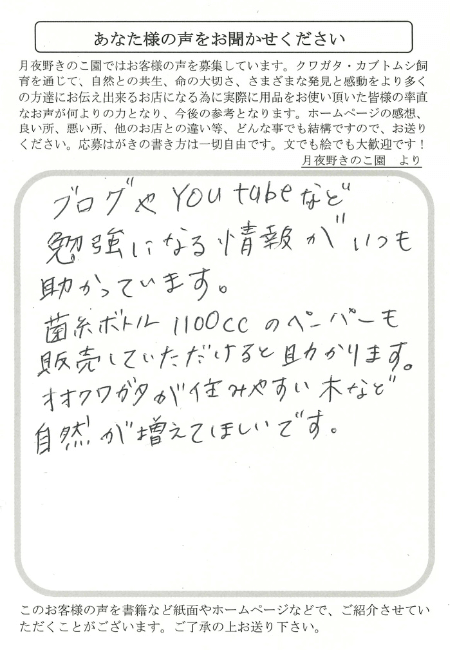 あなた様の声をお聞かせください
月夜野きのこ園ではお客様の声を募集しています。クワガタ・カブトムシ飼
育を通じて、自然との共生、命の大切さ、さまざまな発見と感動をより多く
の方達にお伝え出来るお店になる為に実際に用品をお使い頂いた皆様の率直
なお声が何よりの力となり、今後の参考となります。ホームページの感想、
良い所、悪い所、他のお店との違い等、どんな事でも結構ですので、お送り
ください。応募はがきの書き方は一切自由です。文でも絵でも大歓迎です！
月夜野きのこ園　より
ブログや YOU tabeなど
勉強になる情報が いつも
助かっています。
菌糸ボトル 1100ccのペーパーも
販売していただけると助かります。
オオクワガタが住みやすい木など
自然が増えてほしいです。
このお客様の声を書籍など紙面やホームページなどで、ご紹介させてい
ただくことがございます。ご了承の上お送り下さい。